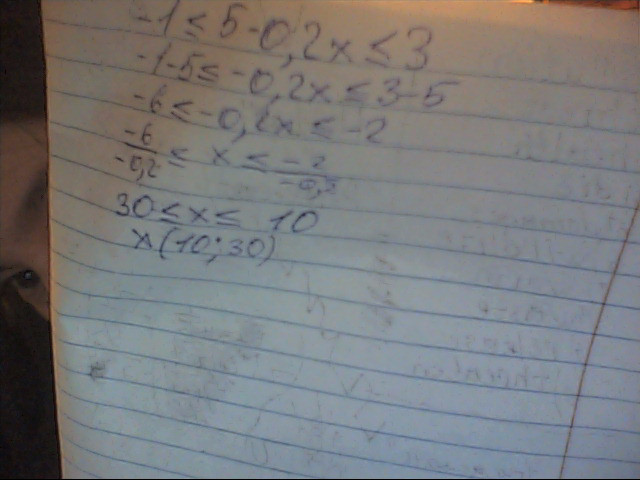 -1 ≤ 5-0,2x ≤ 3
-1-5 ≤ -0,2x ≤ 3-5
-6 ≤ -0,2x ≤ -2
-6/-0,2 ≤ x ≤ -2/-0,2
30 ≤ x ≤ 10
x(10;30)